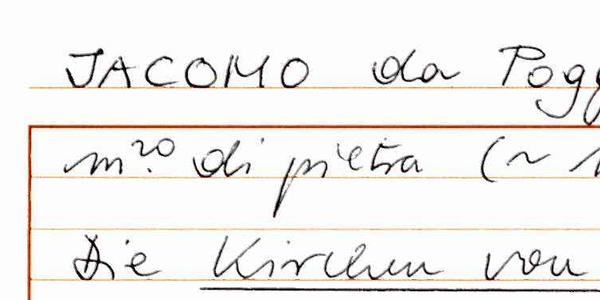 JACOMO da Pogg
m.ro di pietra (~ 1
Die Kirchen von